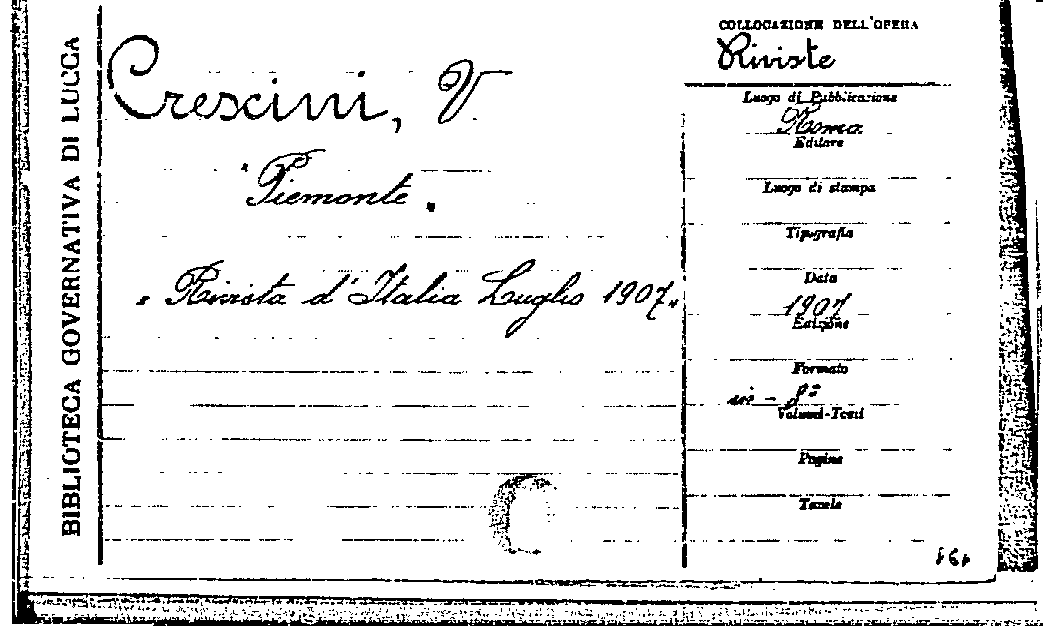 BIBLIOTECA GOVERNATIVA DI LUCCA
Crescini, V
"Piemonte"
"Rivista d'Italia Luglio 1907"
COLLOCAZIONE DELL'OPERA
Riviste
Luogo di Pubblicazione
Roma
Editore
Luogo di stampa
Tipografia
Data
1907
Edizione
Formato
in - 8º
Volumi-Tomi
Pagine
Tavole